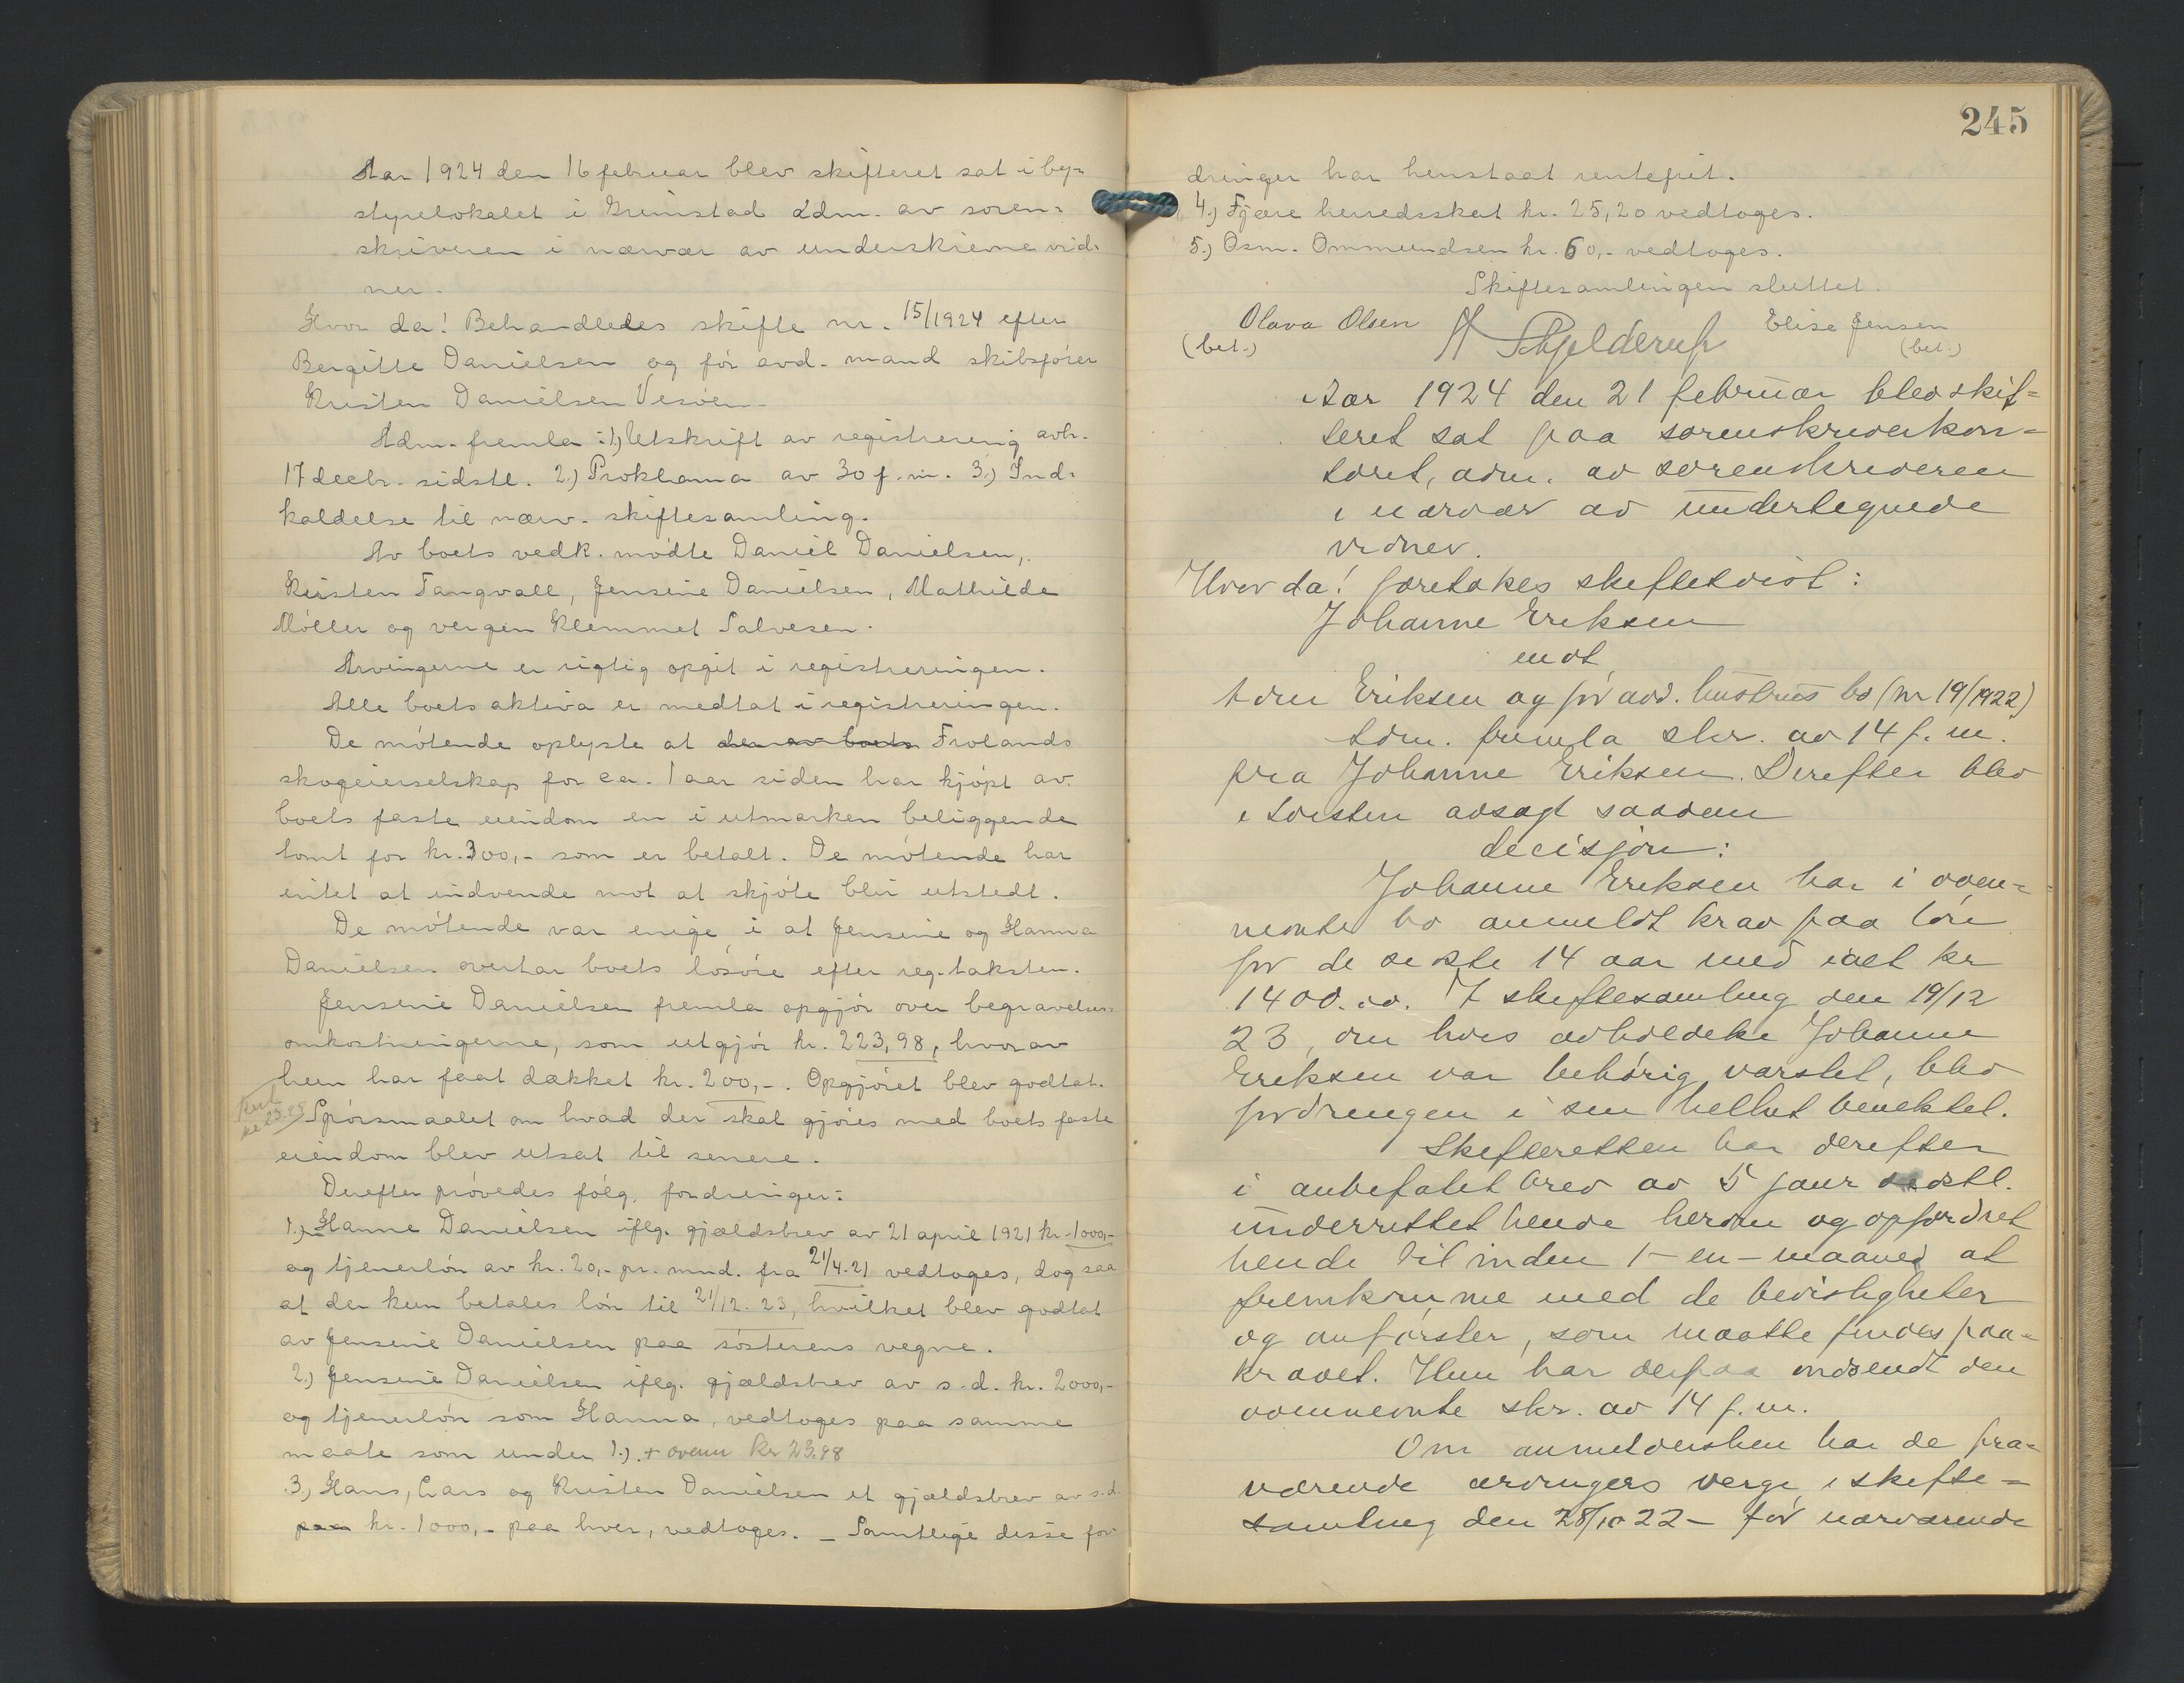 Aar 1924 den 16 februar blev skifteret sat i by=
styrelokalet i Grimstad adm. av soren=
skriveren i nærvær av underskrevne vid=
ner.
Hvor da! Behandledes skifte nr. 15/1924 efter
Bergitte Danielsen og før avd. mand skibsfører
Kristen Danielsen Vesøen.
Adm. fremla: 1) Utskrift av registrering avh.
17 decbr. sidstl. 2.) Proklama av 30 f.m. 3.) Ind=
kaldelse til nærv. skiftesamling.
Av boets vedk. mødte Daniel Danielsen,
Kristen Tangvall, Jensine Danielsen, Mathilde
Møller og vergen Klemmet Salvesen.
Arvingerne er rigtig opgit i registreringen.
Alle boets aktiva er medtat i registreringen.
De møtende oplyste at den av boets Frolands
skogeierselskap for ca. 1 aar siden har kjøpt av
boets faste eiendom en i utmarken beliggende
tomt for kr. 300,- som er betalt. De møtende har
intet at indvende mot at skjøte blir utstedt.
De møtende var enige i at Jensine og Hanna
Danielsen overtar boets løsøre efter reg. taksten.
Jensine Danielsen fremla opgjør over begravelses=
omkostningerne, som utgjør kr. 223,98, hvorav
hun har faat dækket kr. 200,-. Opgjøret blev godtat.
Rest
kr 23.98
Spørsmaalet om hvad der skal gjøres med boets faste
eiendom blev utsat til senere.
Derefter prøvedes følg. fordringer:
1.) Hanne Danielsen iflg. gjældsbrev av 21 april 1921 kr. 1000,-
og tjenerløn av kr. 20,- pr. mnd. fra 21/4-21 vedtoges, dog saa
at der kun betales løn til 21/12. 23, hvilket blev godtat
av Jensine Danielsen paa søsterens vegne.
2.) Jensine Danielsen iflg. gjældsbrev av s.d. kr. 2000,-
og tjenerløn som Hanna, vedtoges paa samme
maate som under 1.). + ovenn kr 23.98
3.) Hans, Lars og Kristen Danielsen et gjældsbrev av s.d.
paa kr. 1000,- paa hver, vedtoges. — Samtlige disse for
245
dringer har henstaat rentefrit.
4.) Fjære herredsskat kr. 25,20 vedtoges.
5.) Osm. Ommundsen kr. 60,- vedtoges.
Skiftesamlingen sluttet.
Olava Olsen H Schjelderup Elise Jensen
(bet.) (bet.)
Aar 1924 den 21 februar blev skif=
teret sat paa sorenskriverkon=
toret, adm. av sorenskriveren
i nærvær av undertegnede
vidner.
Hvor da! foretokes skiftetvist:
Johanne Eriksen
mot
Tom Eriksen og før avd. hustrus bo (nr 19/1922)
Adm. fremla skr. av 14 f.m.
fra Johanne Eriksen. Derefter blev
i tvisten avsagt saadan
decisjon:
Johanne Eriksen har i oven=
nevnte bo anmeldt krav paa løn
for de siste 14 aar med ialt kr
1400.00. I skiftesamling den 19/12
23, om hvis avholdelse Johanne
Eriksen var behørig varslet, blev
fordringen i sin helhet benektet.
Skifteretten har derefter
i anbefalet brev av 5 janr sidstl.
underrettet hende herom og opfordret
hende til inden 1 – en – maaned at
fremkomme med de bevisligheter
og anførsler, som maatte findes paa=
krævet. Hun har derpaa indsendt den
ovennevnte skr. av 14 f.m.
Om anmeldelsen har de fra=
værende arvingers verge i skifte=
samling den 28/10 22 – før nærværende